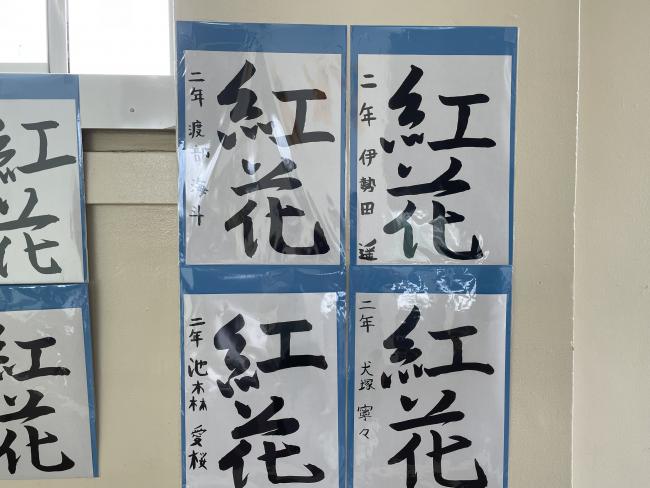 紅花
二年 渡部 海斗
紅花
二年 伊勢田 遥
紅花
紅花
二年 池森 愛桜
紅花
二年 犬塚 寧々
紅花